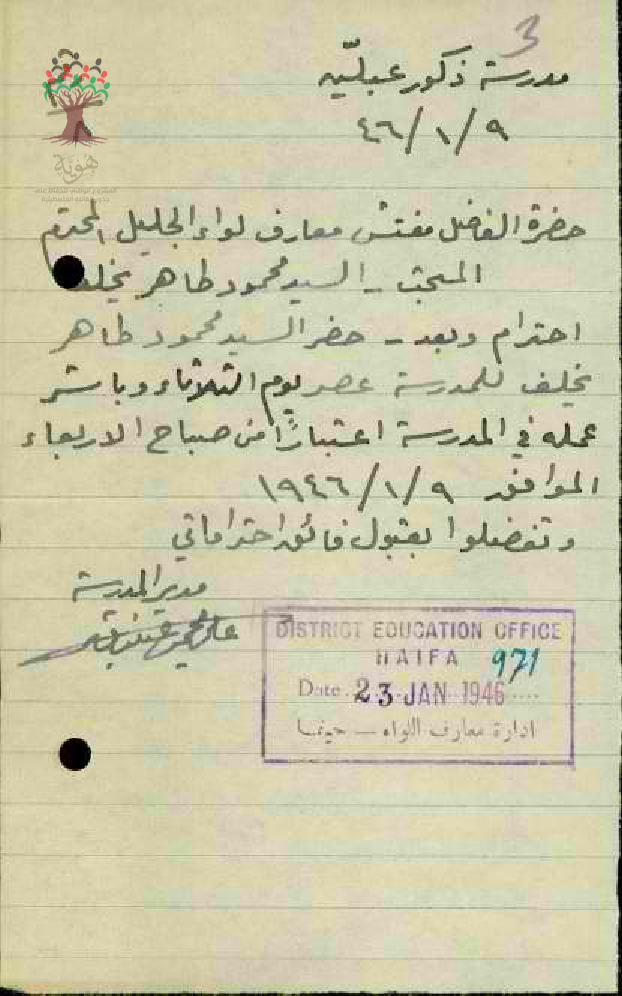 3
مدرسة ذكور عبلّين
٤٦/١/٩
هوية
حضرة الفاضل مفتش معارف لواء الجليل المحترم
المبحث - السيد محمود طاهر يخلف
احترام وبعد - حضر السيد محمود طاهر
يخلف للمدرسة عصر يوم الثلاثاء وباشر
عمله في المدرسة اعتبارًا من صباح الاربعاء
الموافق ١٩٤٦/١/٩
وتفضلوا بقبول فائق احتراماتي
مدير المدرسة
DISTRICT EDUCATION OFFICE
HAIFA 971
Date. 23 JAN 1946
ادارة معارف اللواء — حيفا